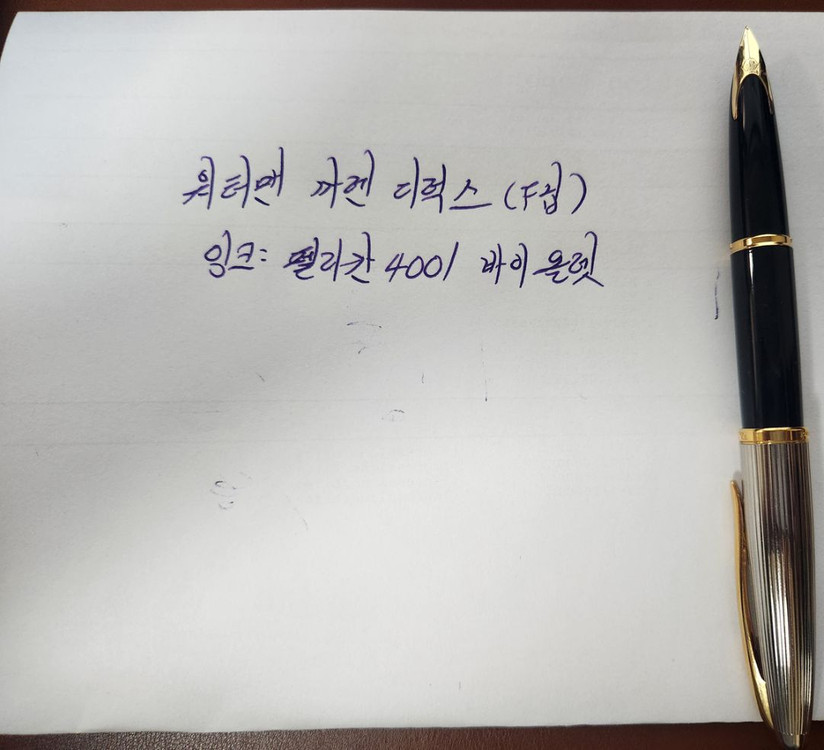 워터맨 까렌 디럭스 (F닙)
잉크: 펠리칸 4001 바이올렛